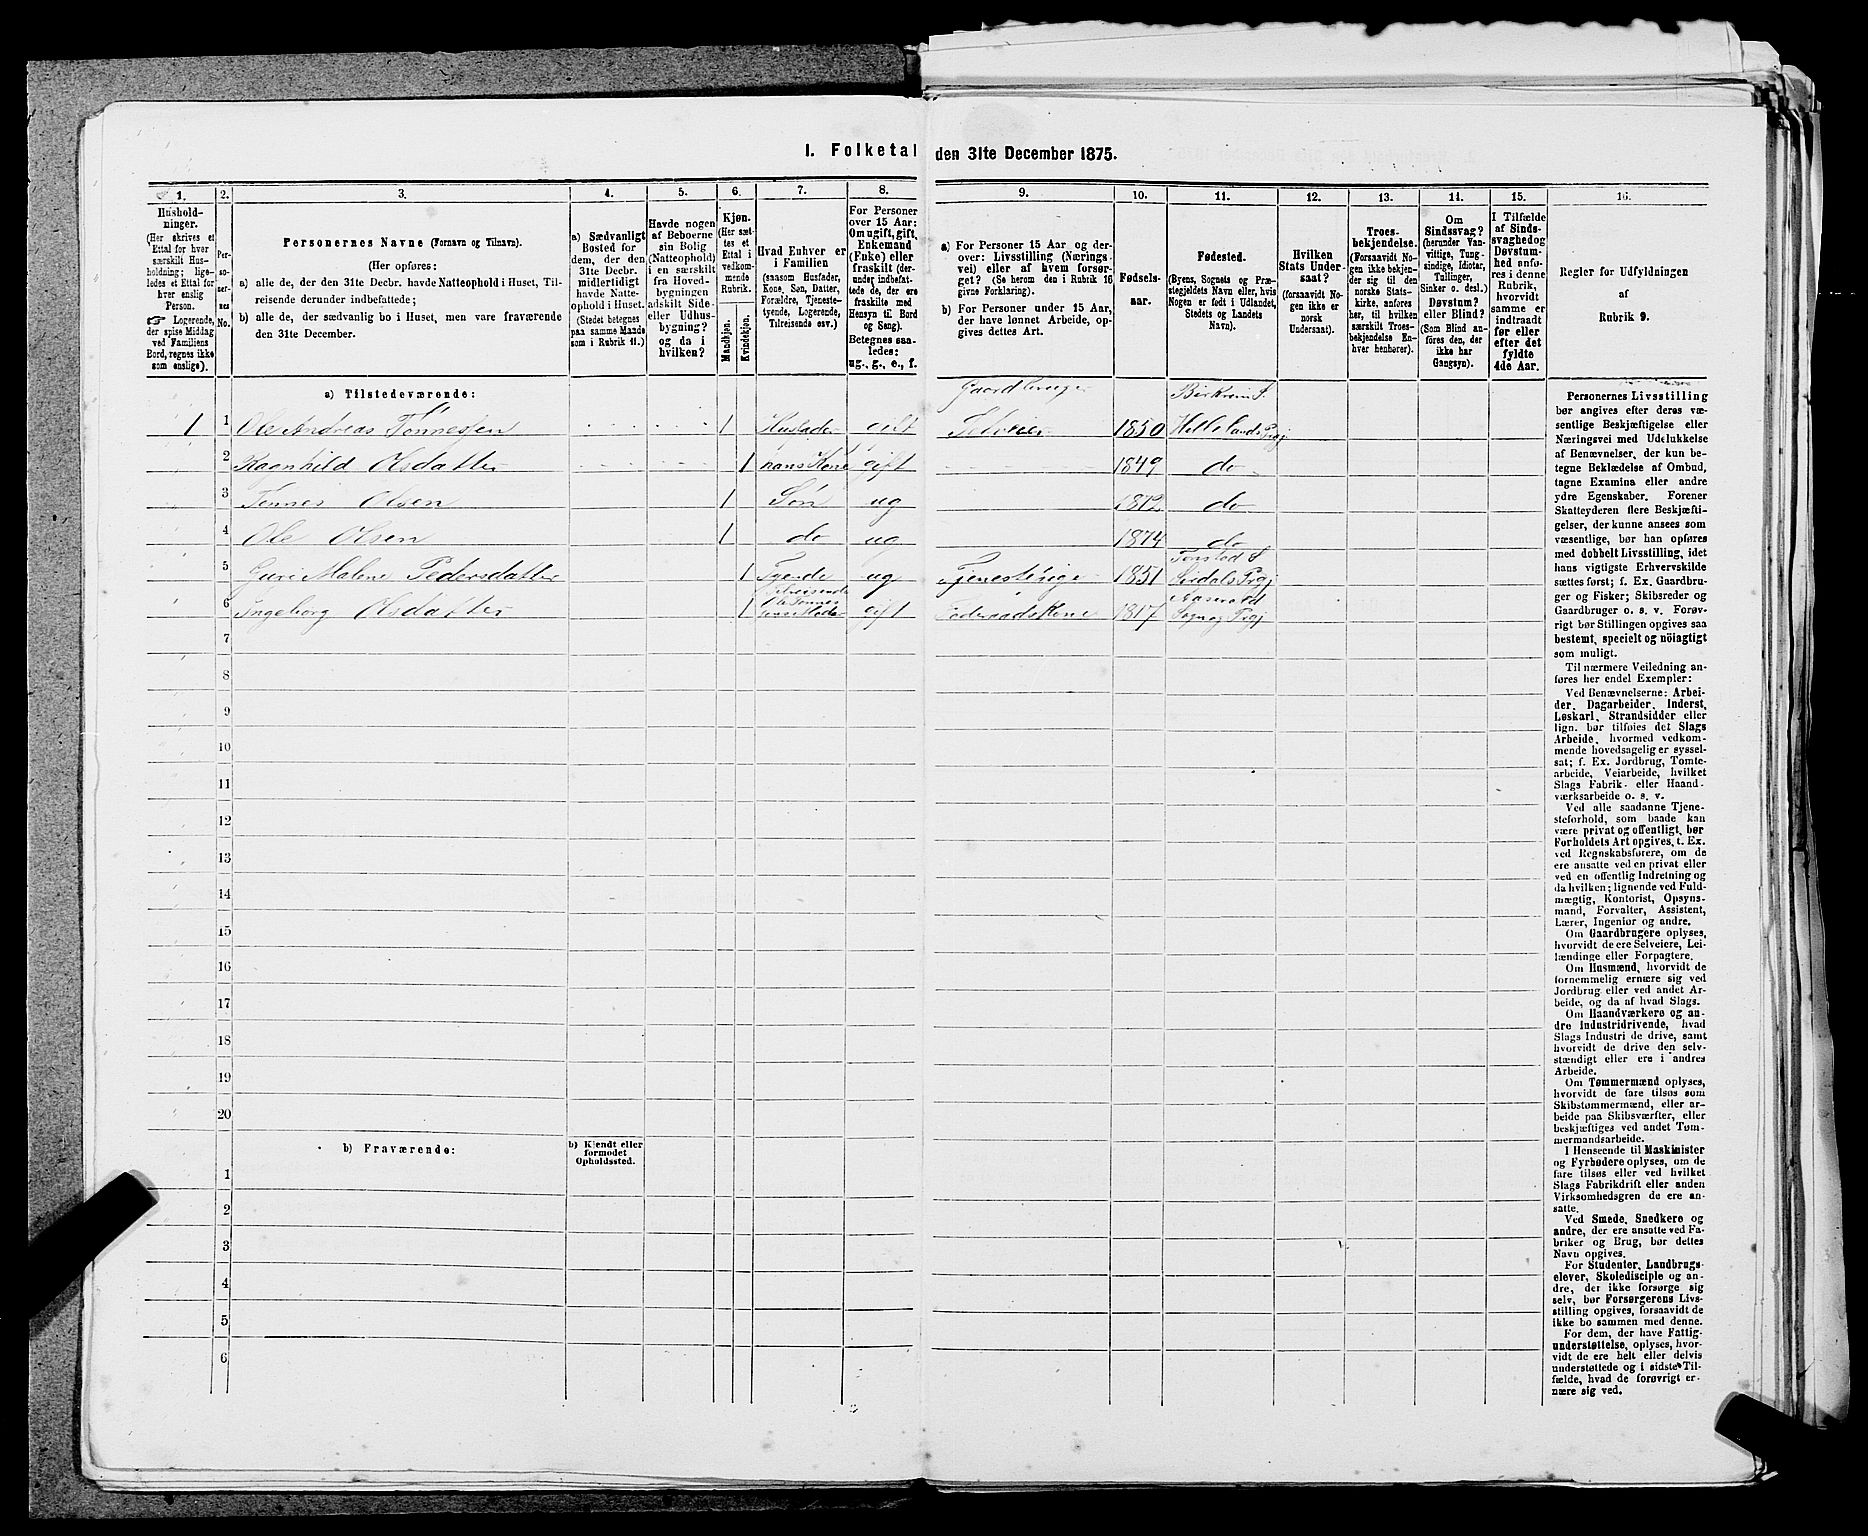 I. Folketal den 31te December 1875.
1. 2. 3. 4. 5. 6. 7. 8. 9. 10. 11. 12. 13. 14. 15. 16.
Hushold-
ninger.
(Her skrives et
Ettal for hver
særskilt Hus-
holdning; lige-
ledes et Ettal for
hver enslig
Person.
☞ Logerende,
der spise Middag
ved Familiens
Bord, regnes ikke
som enslige).
Per-
so-
ner-
nes
No.
Personernes Navne (Fornavn og Tilnavn).
(Her opføres:
a) alle de, der den 31te Decbr. havde Natteophold i Huset, Til-
reisende derunder indbefattede;
b) alle de, der sædvanlig bo i Huset, men vare fraværende
den 31te December.
a) Sædvanligt
Bosted for
dem, der den
31te Decbr.
midlertidigt
havde Natte-
ophold i Huset.
(Stedet betegnes
paa samme Maade
som i Rubrik 11.)
Havde nogen
af Beboerne
sin Bolig
(Natteophold)
i en særskilt
fra Hoved-
bygningen
adskilt Side-
eller Udhus-
bygning?
og da i
hvilken?
Kjøn.
(Her sæt-
tes et
Ettal i
vedkom-
mende
Rubrik.
Mandkjøn.
Kvindekjøn.
Hvad Enhver er
i Familien
(saasom Husfader,
Kone, Søn, Datter,
Forældre, Tjeneste-
tyende, Logerende,
Tilreisende osv.)
For Personer
over 15 Aar:
Om ugift, gift,
Enkemand
(Enke) eller
fraskilt (der-
under indbefat-
tede de, der ere
fraskilte med
Hensyn til Bord
og Seng).
Betegnes saa-
ledes:
ug., g., e., f.
a) For Personer 15 Aar og der-
over: Livsstilling (Nærings-
vei) eller af hvem forsør-
get? (Se herom den i Rubrik 16
givne Forklaring).
b) For Personer under 15 Aar,
der have lønnet Arbeide, op-
gives dettes Art.
Fødsels-
aar.
Fødested.
(Byens, Sognets og Præ-
stegjeldets Navn eller, hvis
Nogen er født i Udlandet,
Stedets og Landets
Navn).
Hvilken
Stats Under-
saat?
(forsaavidt No-
gen ikke er
norsk
Undersaat).
Troes-
bekjendelse.
(Forsaavidt No-
gen ikke bekjen-
der sig til den
norske Stats-
kirke, anføres
her, til hvilken
særskilt Troes-
bekjendelse En-
hver henhører).
Om
Sindssvag?
(herunder Van-
vittige, Tung-
sindige, Idioter,
Tullinger,
Sinker o. desl.)
Døvstum?
eller Blind?
(Som Blind an-
føres den, der
ikke har
Gangsyn).
I Tilfælde
af Sinds-
svaghed og
Døvstum-
hed anfø-
res i denne
Rubrik,
hvorvidt
samme er
indtraadt
før eller
efter det
fyldte
4de Aar.
Regler for Udfyldningen
af
Rubrik 9.
a) Tilstedeværende:
Gaardbruger Birkrem S.
1 1 Ole Andreas Tønnessen 1 Husfader gift Selveier 1850 Hellelands Prgj
2 Ragnhild Olsdatter 1 hans Kone gift 1849 do
3 Tønnes Olsen 1 Søn ug 1872 do
4 Ole Olsen 1 do ug 1874 do
Tonstad S
5 Guri Malene Pedersdatter 1 Tyende ug Tjenestepige 1851 Sirdals Prgj
Tilreisende
Ole Tønnes
6 Ingeborg Olsdatter 1 sens Moder gift Føderaadskone 1817 Sogn og Prgj
7
8
9
10
11
12
13
14
15
16
17
18
19
20
b) Fraværende:
b) Kjendt eller
formodet
Opholdssted.
1
2
3
4
5
6
Personernes Livsstilling
bør angives efter deres væ-
sentlige Beskjæftigelse eller
Næringsvei med Udelukkelse
af Benævnelser, der kun be-
tegne Beklædelse af Ombud,
tagne Examina eller andre
ydre Egenskaber. Forener
Skatteyderen flere Beskjæfti-
gelser, der kunne ansees som
væsentlige, bør han opføres
med dobbelt Livsstilling, idet
hans vigtigste Erhvervskilde
sættes først; f. Ex. Gaardbru-
ger og Fisker; Skibsreder og
Gaardbruger o. s. v. Forøv-
rigt bør Stillingen opgives saa
bestemt, specielt og nöiagtigt
som muligt.
Til nærmere Veiledning an-
føres her endel Exempler:
Ved Benævnelserne: Arbei-
der, Dagarbeider, Inderst,
Løskarl, Strandsidder eller
lign. bør tilføies det Slags
Arbeide, hvormed vedkom-
mende hovedsagelig er syssel-
sat; f. Ex. Jordbrug, Tomte-
arbeide, Veiarbeide, hvilket
Slags Fabrik- eller Haand-
værksarbeide o. s. v.
Ved alle saadanne Tjene-
steforhold, som baade kan
være privat og offentligt, bør
Forholdets Art opgives, t. Ex.
ved Regnskabsførere, om de
ere ansatte ved en privat eller
ved en offentlig Indretning og
da hvilken; lignende ved Fuld-
mægtig, Kontorist, Opsyns-
mand, Forvalter, Assistent,
Lærer, Ingeniør og andre.
Om Gaardbrugere oplyses,
hvorvidt de ere Selveiere, Lei-
lændinge eller Forpagtere.
Om Husmænd, hvorvidt de
fornemmelig ernære sig ved
Jordbrug eller ved andet Ar-
beide, og da af hvad Slags.
Om Haandværkere og an-
dre industridrivende, hvad
Slags Industri de drive, samt
hvorvidt de drive den selv-
stændigt eller ere i andres
Arbeide.
Om Tømmermænd oplyses,
hvorvidt de fare tilsøs som
Skibstømmermænd, eller ar-
beide paa Skibsværfter, eller
beskjæftiges ved andet Tøm-
mermandsarbeide.
I Henseende til Maskinister
og Fyrbødere oplyses, om de
fare tilsøs eller ved hvilket
Slags Fabrikdrift eller anden
Virksomhedsgren de ere an-
satte.
Ved Smede, Snedkere og
andre, der ere ansatte ved Fa-
briker og Brug, bør dettes
Navn opgives.
For Studenter, Landbrugs-
elever, Skoledisciple og an-
dre, der ikke forsørge sig
selv, bør Forsørgerens Livs-
stilling opgives, forsaavidt de
ikke bo sammen med denne.
For dem, der have Fattig-
understøttelse, oplyses, hvor-
vidt de ere helt eller delvis
understøttede og i sidste Til-
fælde, hvad de forøvrigt er-
nære sig ved.